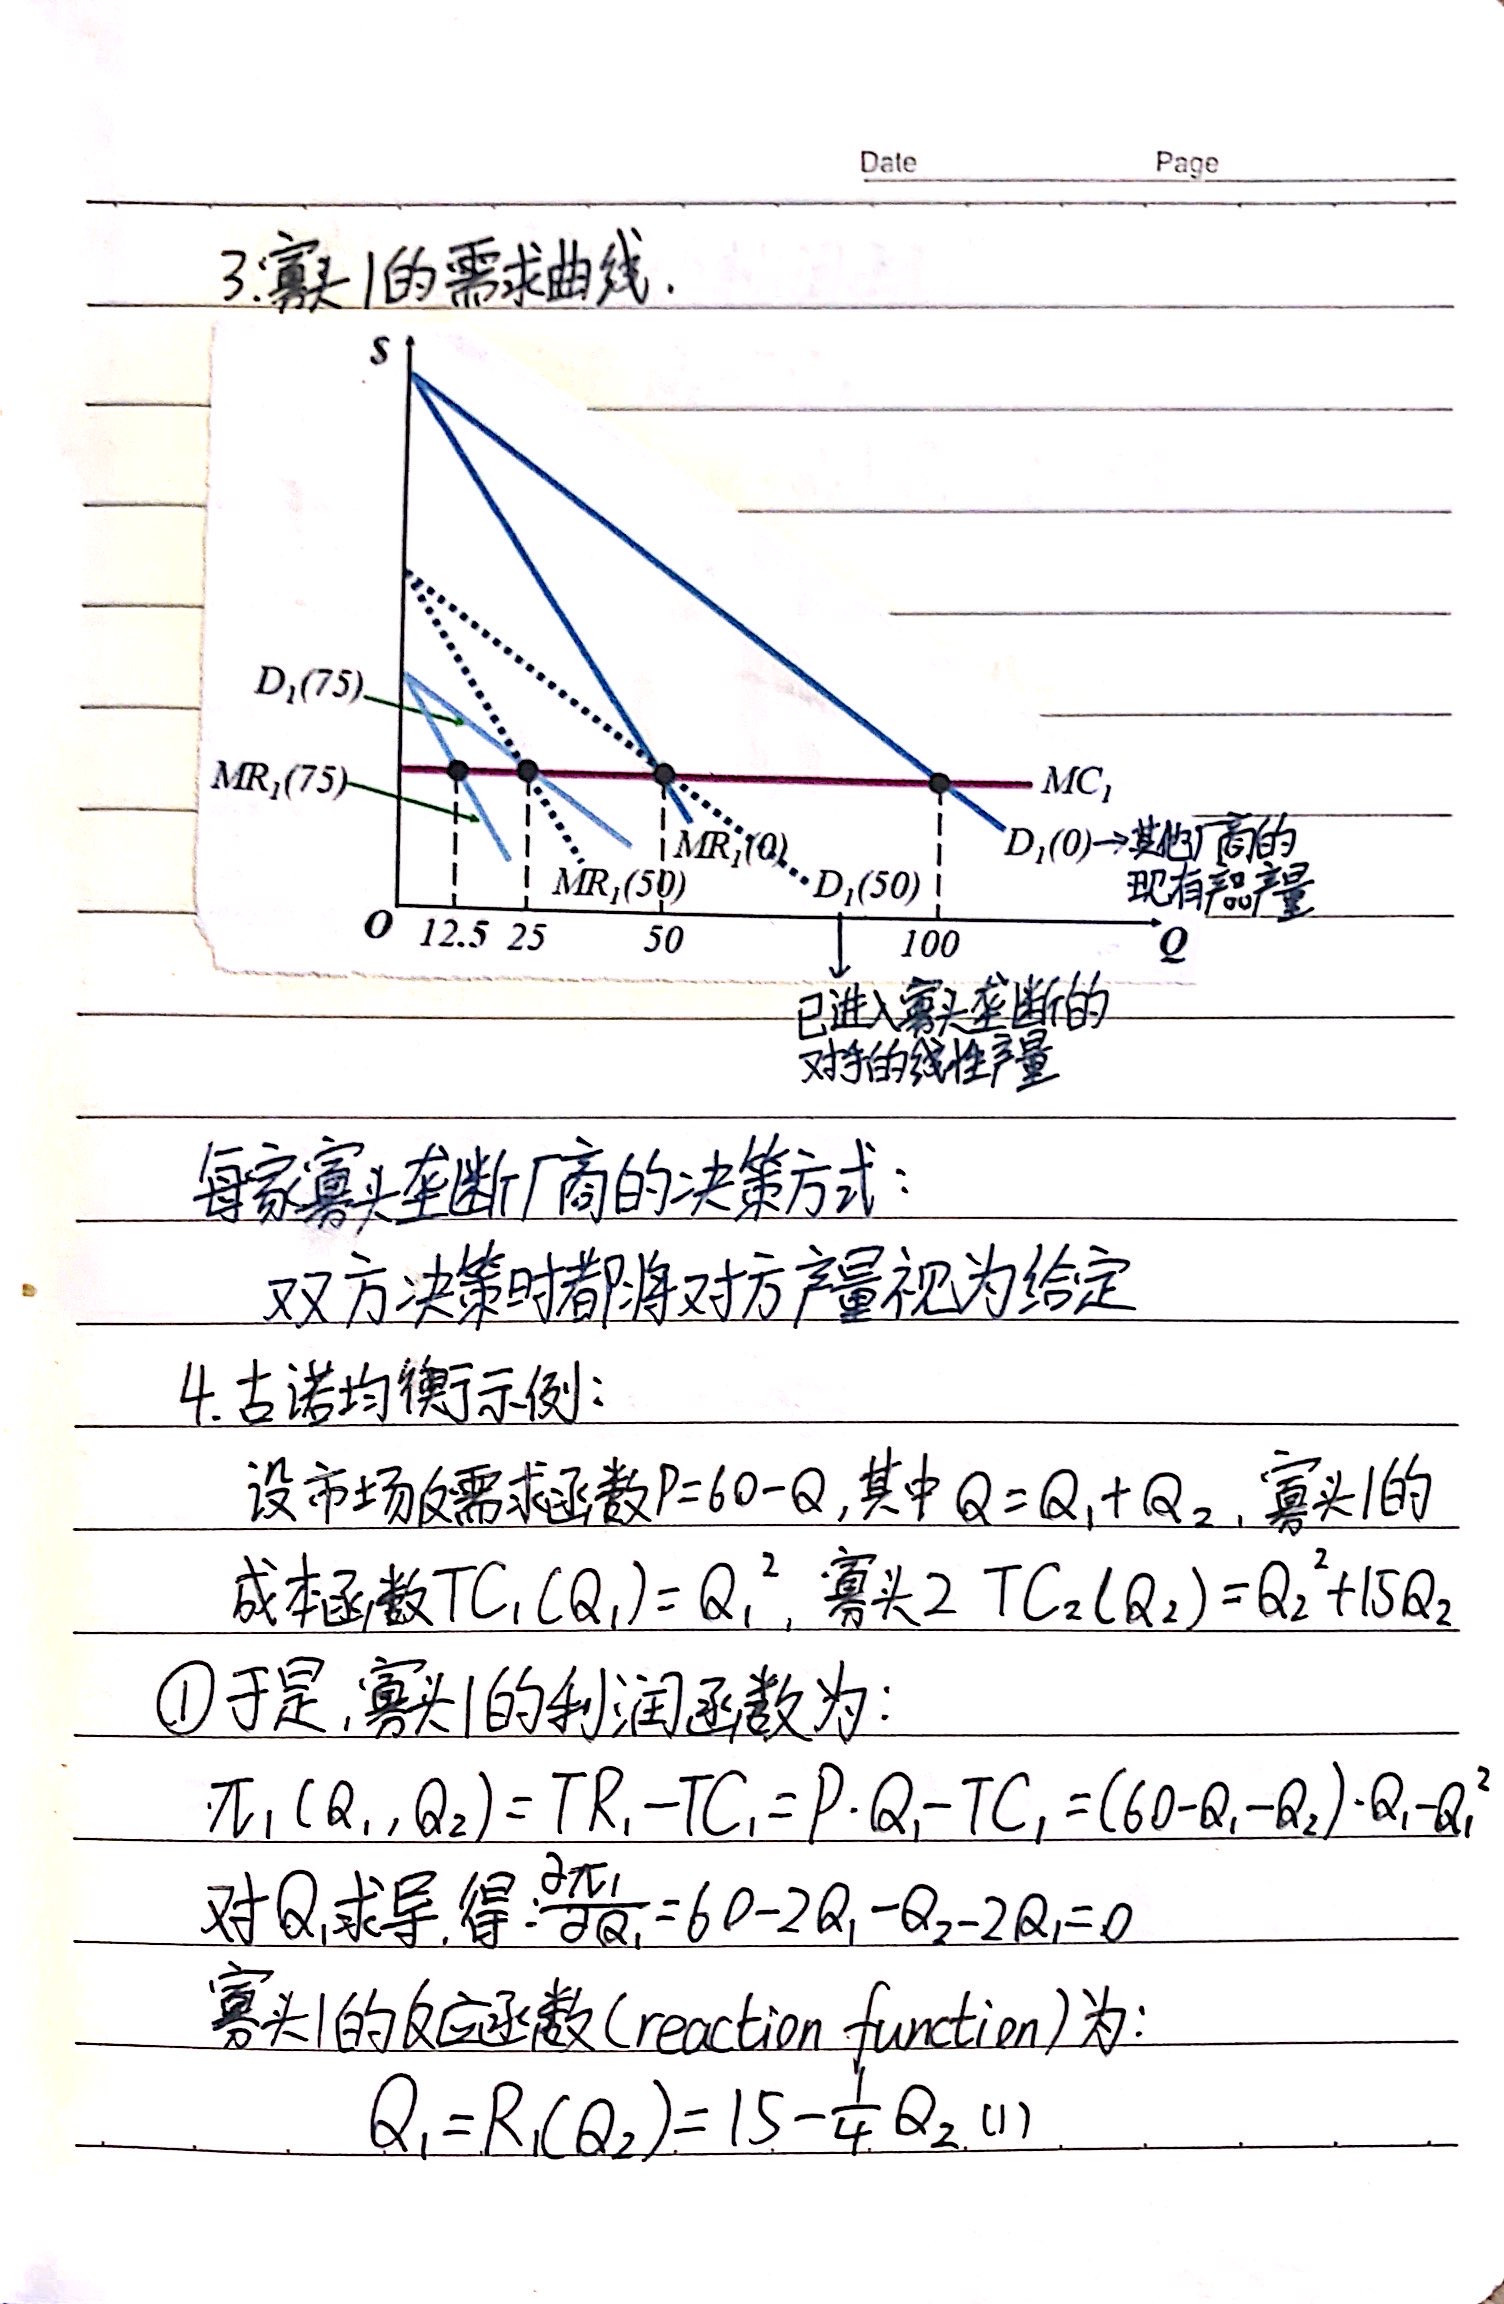 Date Page
3.寡头1的需求曲线.
S
D₁(75)
MR₁(75)
MC₁
D₁(0)→其他厂商的
现有产品产量
MR₁(0)
MR₁(50)
D₁(50)
O 12.5 25 50 100 Q
已进入寡头垄断的
对手的线性产量
每家寡头垄断厂商的决策方式:
双方决策时都将对方产量视为给定
4.古诺均衡示例:
设市场反需求函数P=60-Q,其中Q=Q₁+Q₂,寡头1的
成本函数TC₁(Q₁)=Q₁²,寡头2 TC₂(Q₂)=Q₂²+15Q₂
①于是,寡头1的利润函数为:
π₁(Q₁,Q₂)=TR₁-TC₁=P·Q₁-TC₁=(60-Q₁-Q₂)·Q₁-Q₁²
对Q₁求导,得:∂π₁/∂Q₁=60-2Q₁-Q₂-2Q₁=0
寡头1的反应函数(reaction function)为:
Q₁=R₁(Q₂)=15-1/4Q₂ (1)